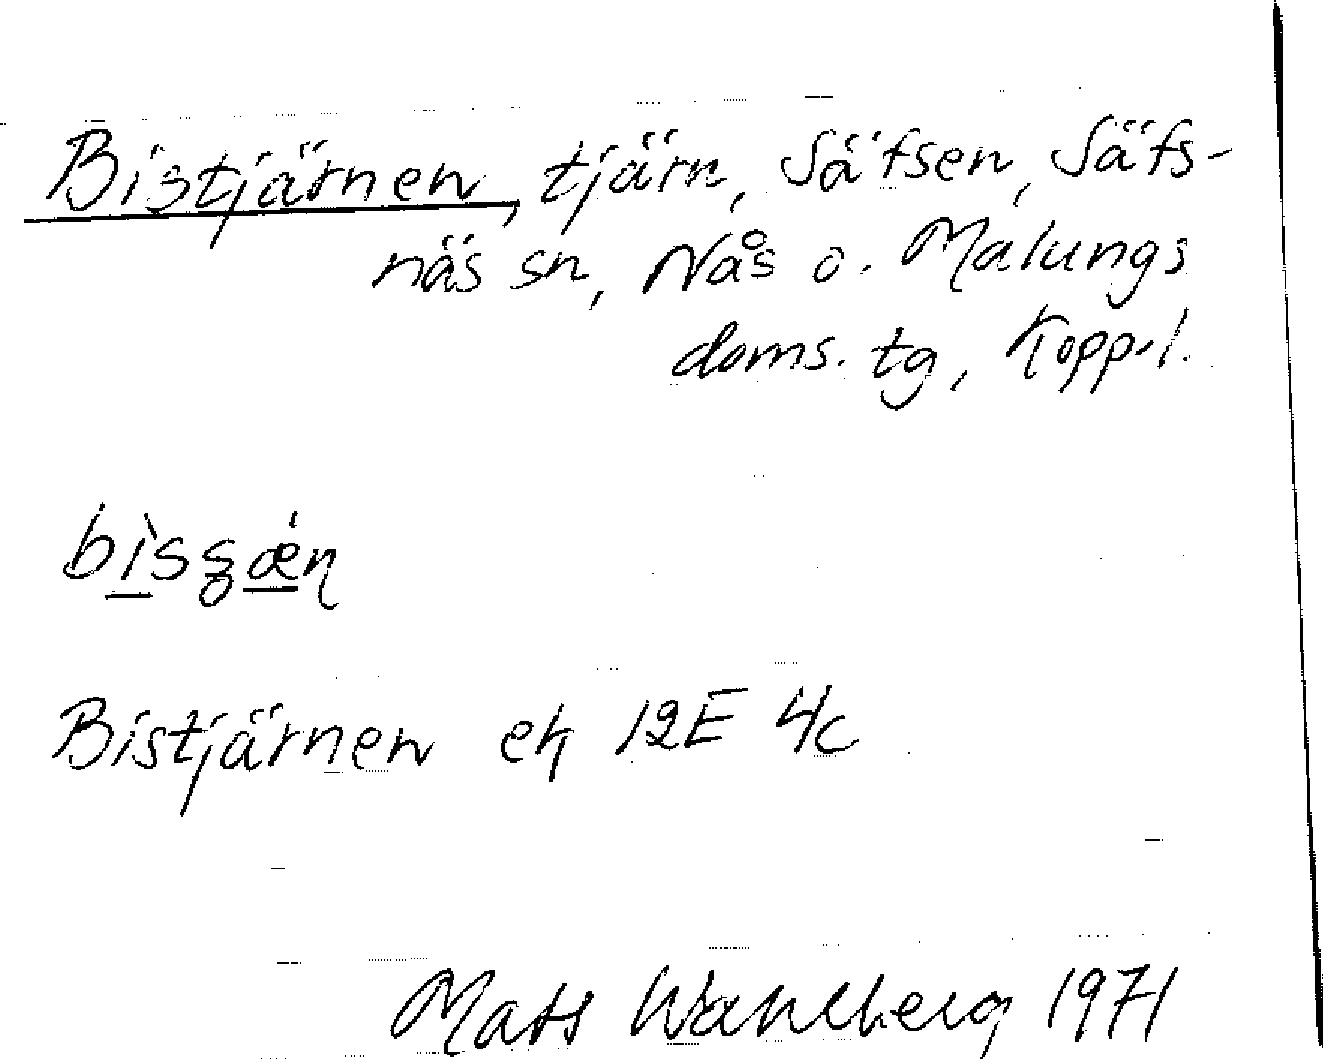 Bistjärnen, tjärn, Säfsen, Säfs-
näs sn, Nås o. Malungs
doms. tg, Kopp. l.
Bistjärnen ek 12E 4c
Mats Wahlberg 1971